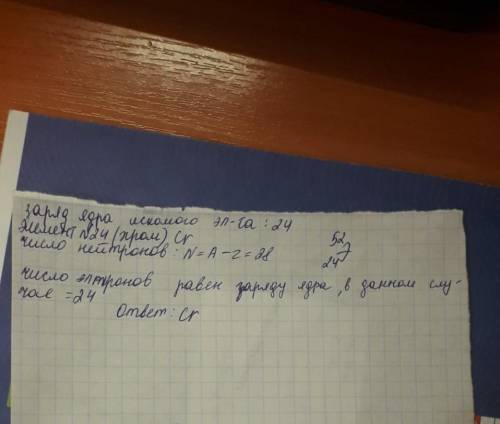 заряд ядра искомого эл-та : 24
элемент №24 (хром) Cr
число нейтронов : N = A - Z = 28
52
24
число элтронов равен заряду ядра, в данном слу-
чае = 24
Ответ : Cr